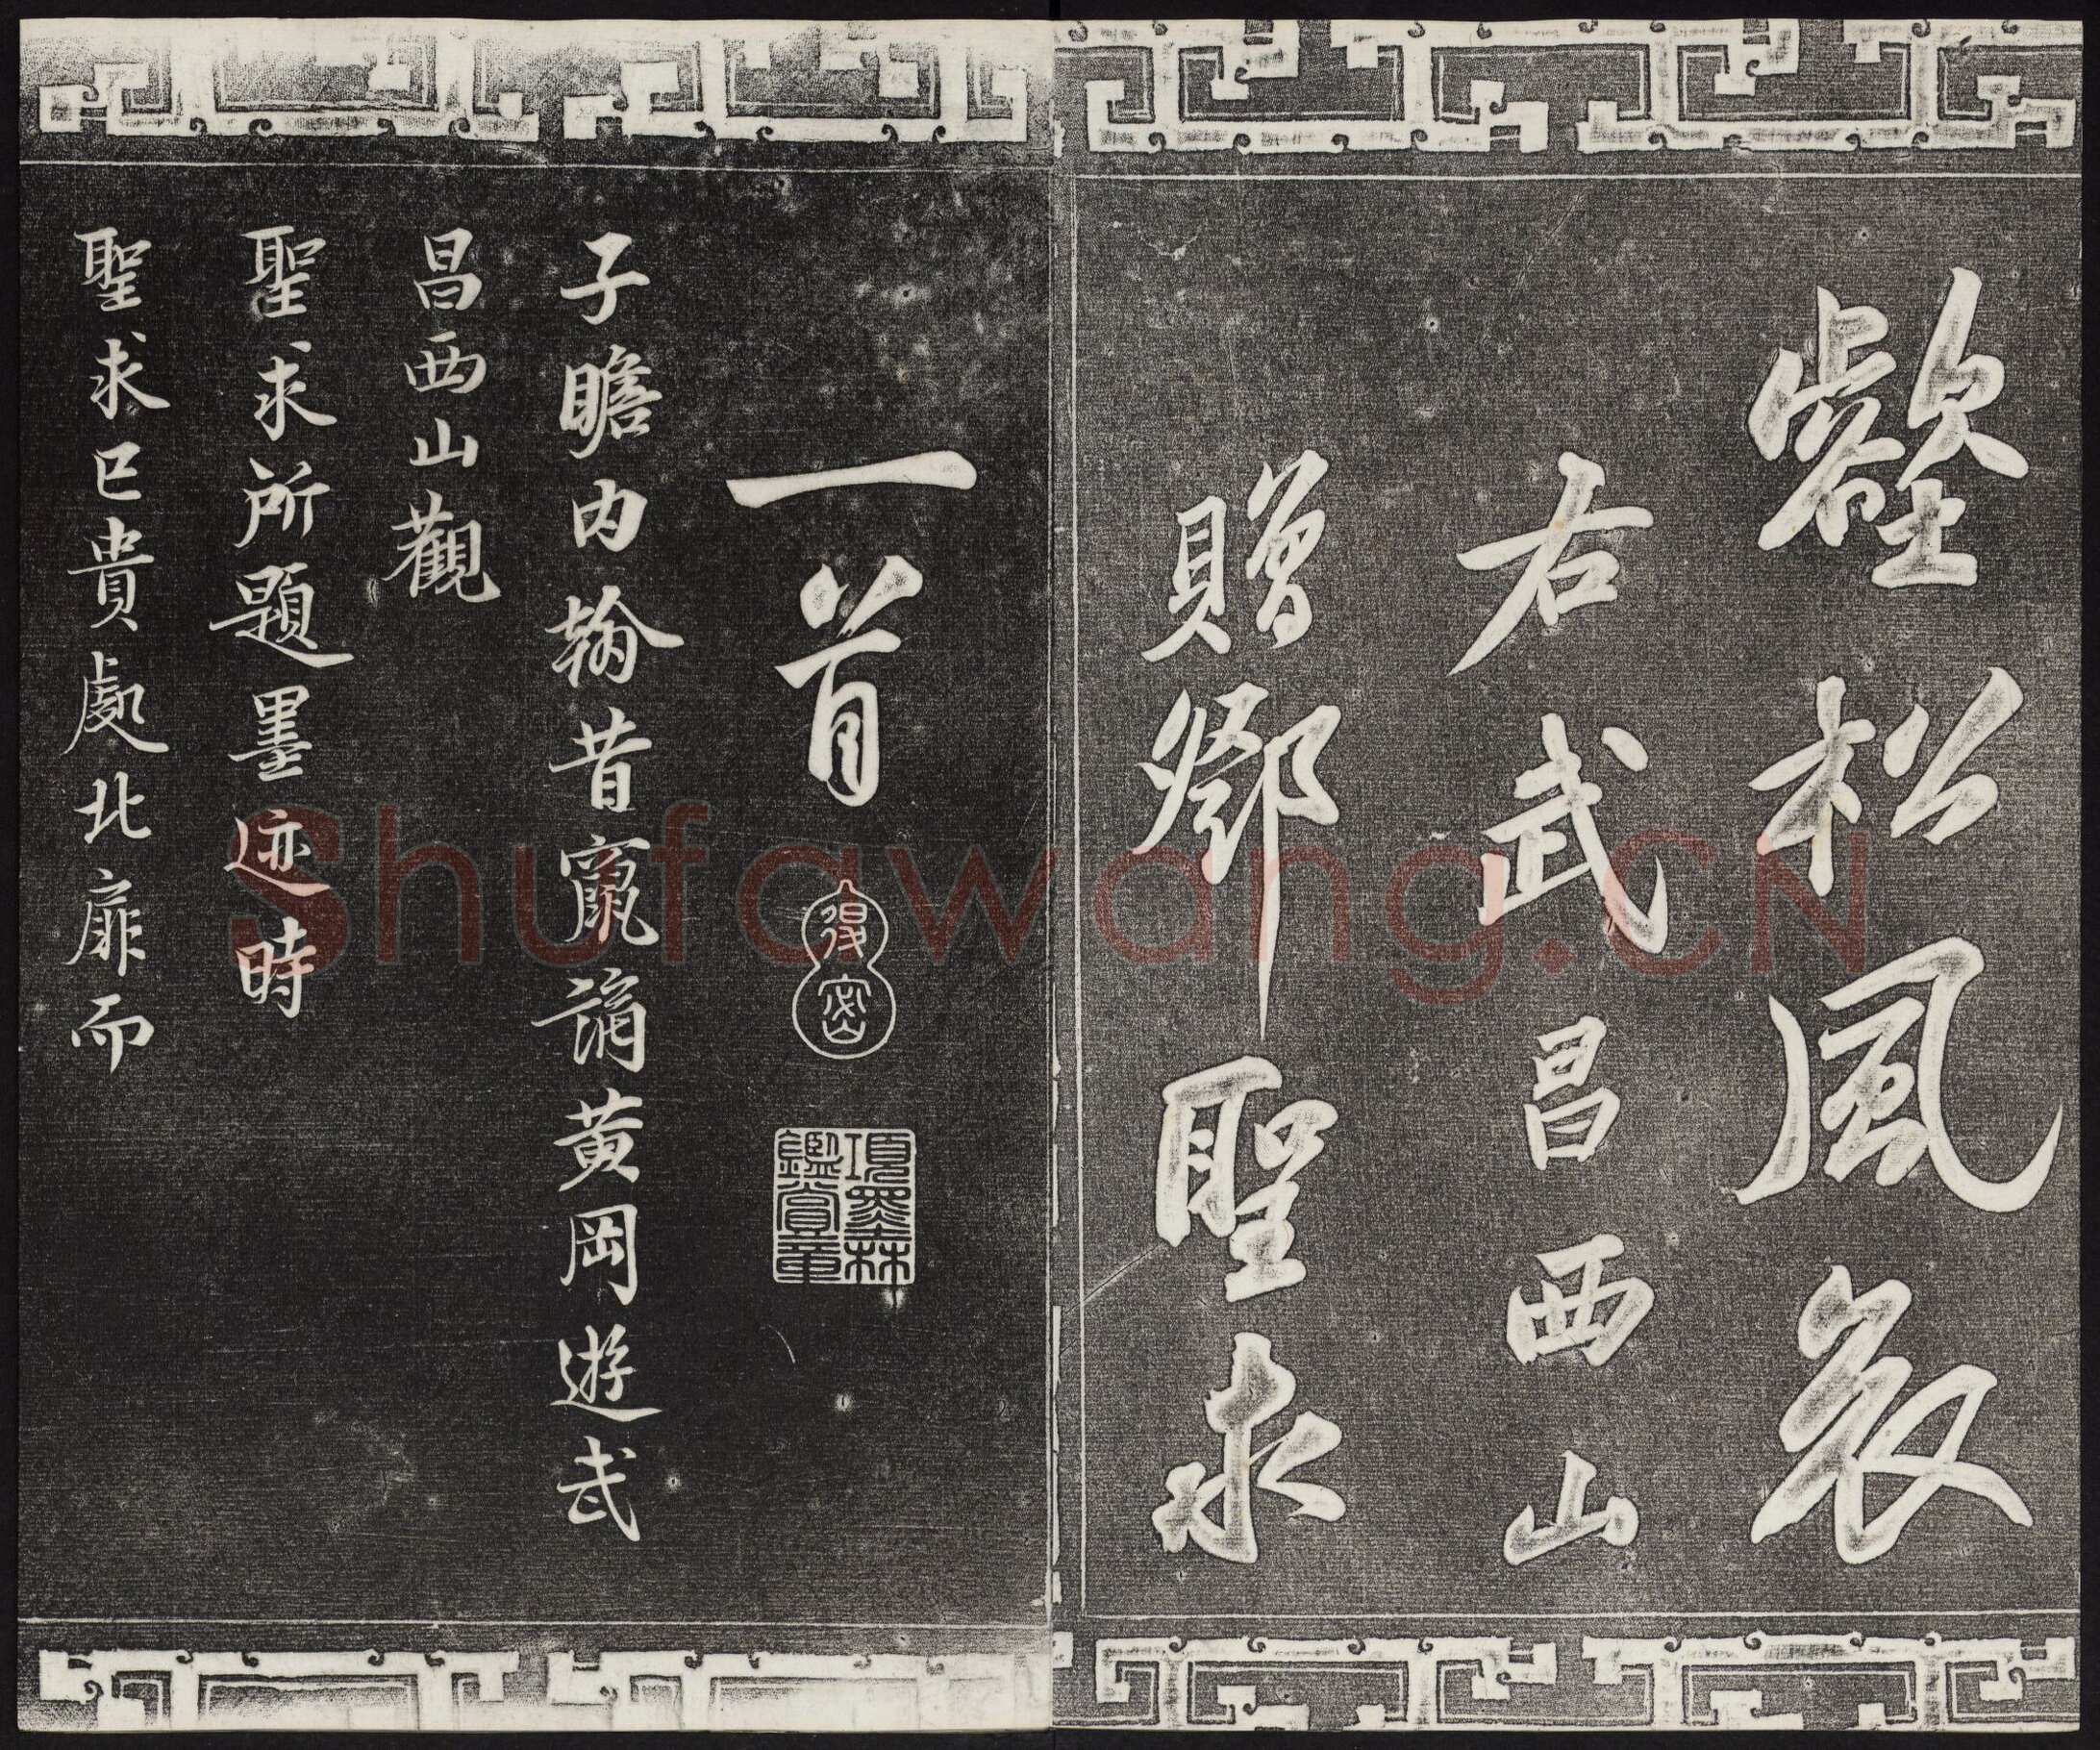 壑松風哀
右武昌西山
贈鄧聖求
一首
得密
項墨林
鑑賞章
子瞻内翰昔竄謫黄岡遊武
昌西山觀
聖求所題墨迹時
聖求已貴處北扉而
Shufawang.CN